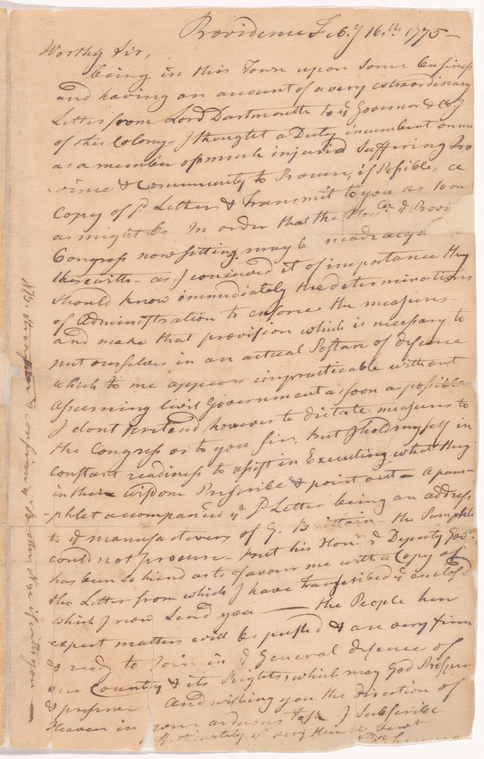 Providence Feby 16.th 1775 —
Worthy Sir,
being in this Town upon Some business
and having an account of a very extraordinary
Letter from Lord Dartmouth to ye Governor & Coy
of this Colony I thought a Duty incumbent on me
as a member of much injured Suffering Pro
vince & Community to Procure, if Possible, a
Copy of sd. Letter & transmit to you as soon
as might be In order that the Honl. ye Provl
Congress now sitting, may be made
therewith — as I conceived it of importance they
should know immediately the determinations
of Administration to enforce the measures —
and make that provision which is necessary to
put ourselves in an actual Posture of defence
which to me appears impracticable without
assuming Civil Government as soon as possible
I dont Pretend however to dictate measures to
the Congress or to you sir, but I hold myself in
constant readiness to assist in Executing what they
in their wisdom Prescribe & point out — A pam-
phlet accompanied ye sd Letter being an address
to ye manufacturers of G. Brittain — the Pamphlet
could not procure — but his Honr. ye Deputy Govr.
has been so kind as to favour me with a Copy of
the Letter from which I have transcribed ye enclosd
which I now Send you — the People here
expect matters will be pushed & are very firm
& ready to Join in ye General defence of
our Country & its Rights, which may God Prosper
& preserve And wishing you the direction of
Heaven in your arduous task I Subscribe
Affectionately yr. very Humbl Servt